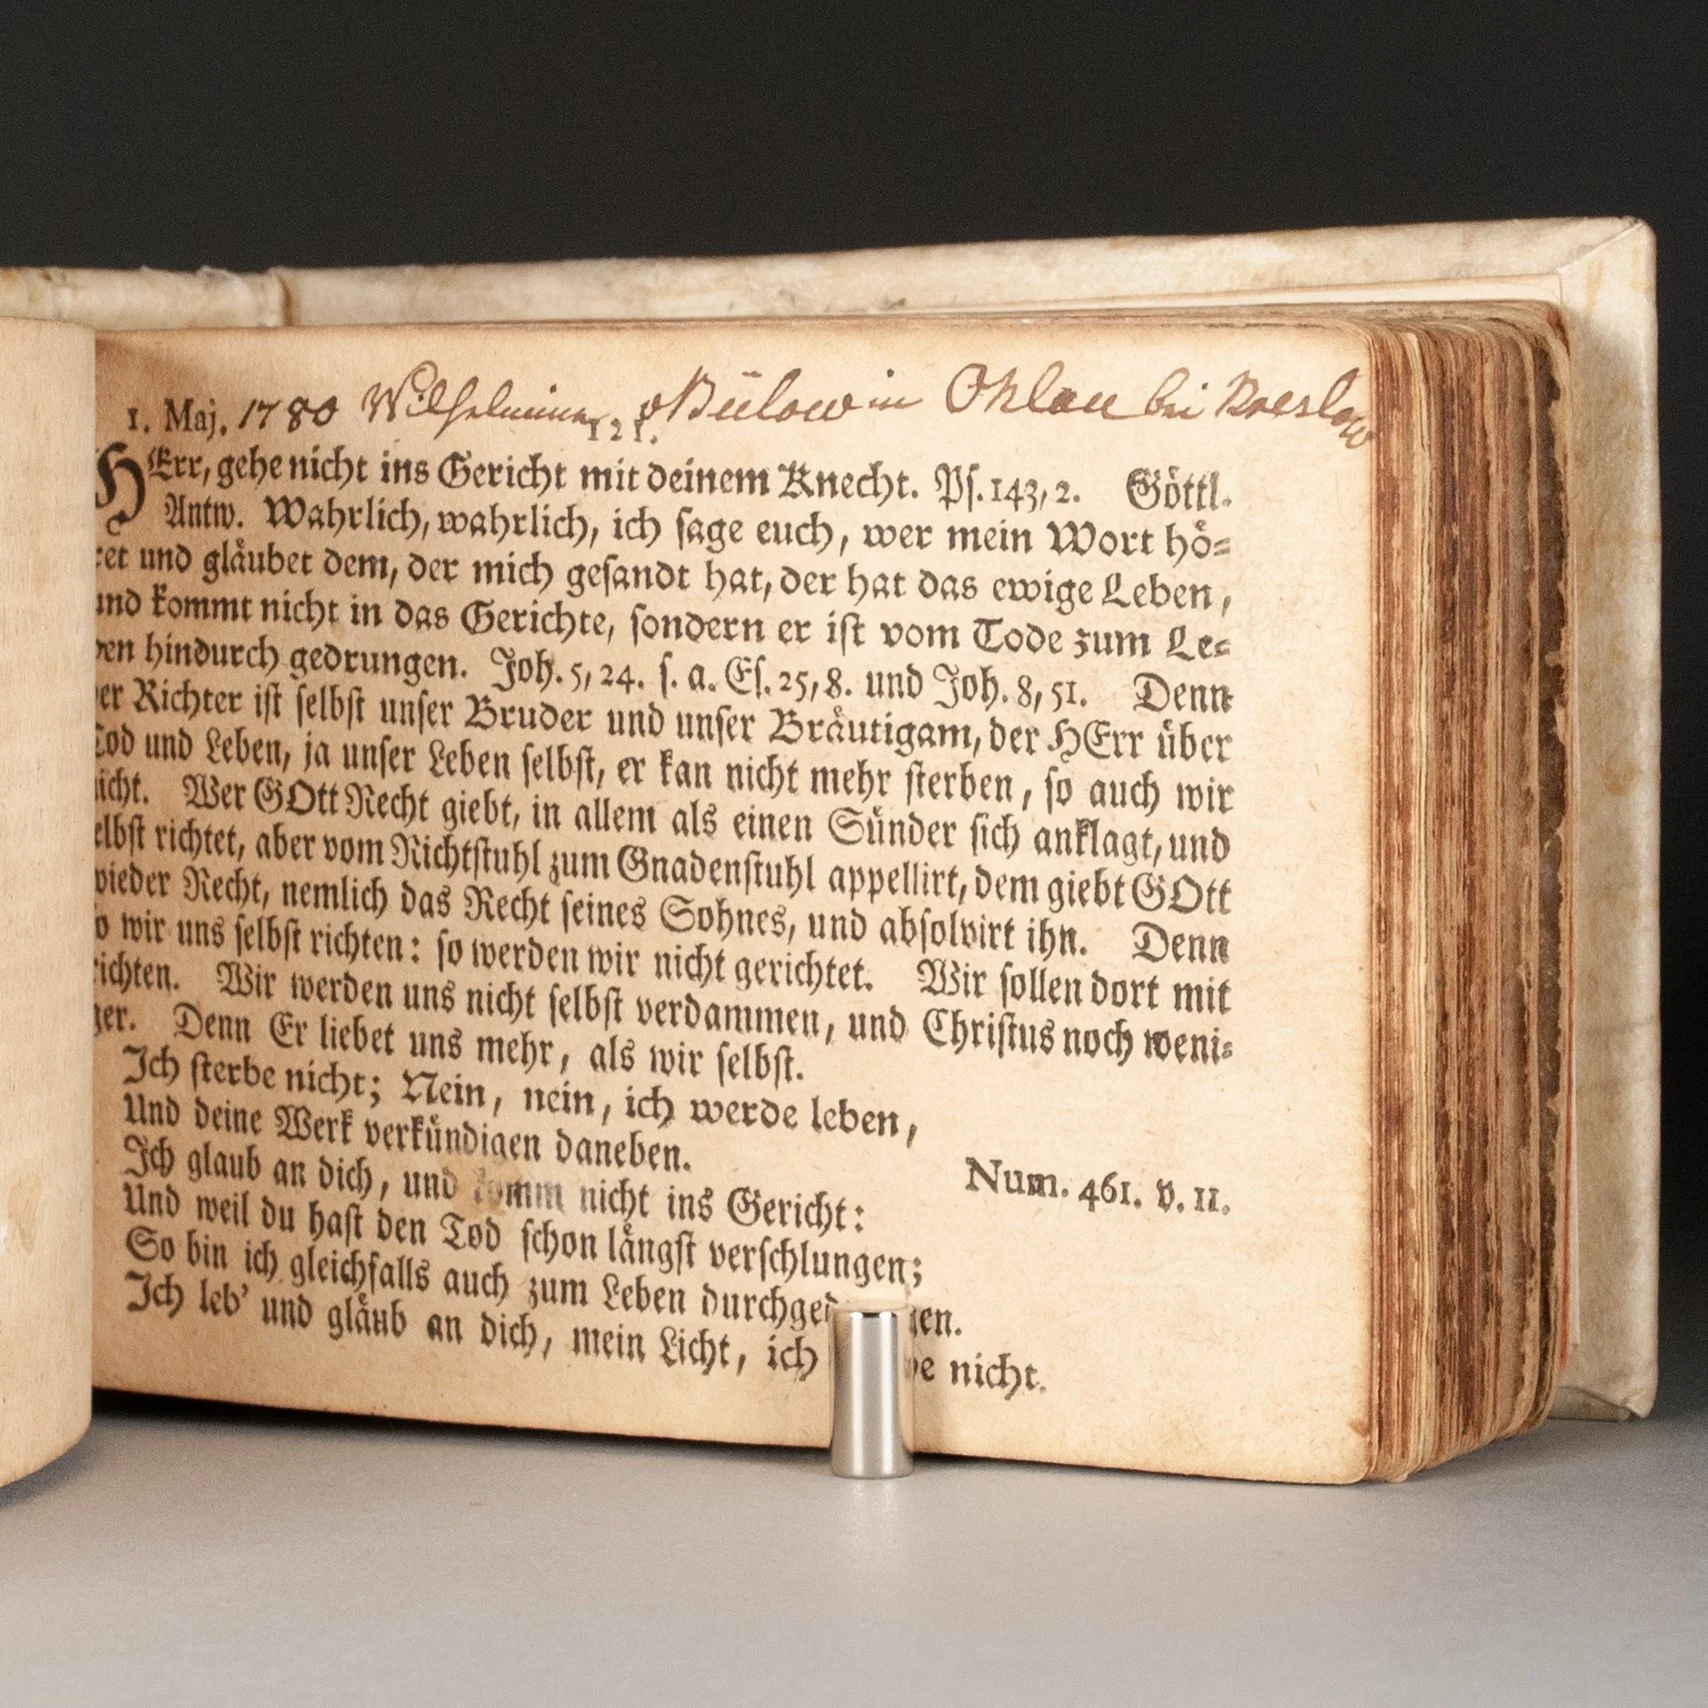 1. Maj. 1780 Wilhelmine v Bülow in Ohlau bei Breslau
121.
HErr, gehe nicht ins Gericht mit deinem Knecht. Pſ. 143, 2. Göttl.
Antw. Wahrlich, wahrlich, ich ſage euch, wer mein Wort hoͤ-
ret und glaͤubet dem, der mich geſandt hat, der hat das ewige Leben,
und kommt nicht in das Gerichte, ſondern er iſt vom Tode zum Le-
ben hindurch gedrungen. Joh. 5, 24. ſ. a. Eſ. 25, 8. und Joh. 8, 51. Denn
der Richter iſt ſelbſt unſer Bruder und unſer Braͤutigam, der HErr uͤber
Tod und Leben, ja unſer Leben ſelbſt, er kan nicht mehr ſterben, ſo auch wir
nicht. Wer GOtt Recht giebt, in allem als einen Suͤnder ſich anklagt, und
ſelbſt richtet, aber vom Richtſtuhl zum Gnadenſtuhl appellirt, dem giebt GOtt
wieder Recht, nemlich das Recht ſeines Sohnes, und abſolvirt ihn. Denn
ſo wir uns ſelbſt richten: ſo werden wir nicht gerichtet. Wir ſollen dort mit
richten. Wir werden uns nicht ſelbſt verdammen, und Chriſtus noch weni-
ger. Denn Er liebet uns mehr, als wir ſelbſt.
Ich ſterbe nicht; Nein, nein, ich werde leben,
Und deine Werk verkuͤndigen daneben. Num. 461. v. 11.
Ich glaub an dich, und komm nicht ins Gericht:
Und weil du haſt den Tod ſchon laͤngſt verſchlungen;
So bin ich gleichfalls auch zum Leben durchgedrungen.
Ich leb' und glaͤub an dich, mein Licht, ich nicht.